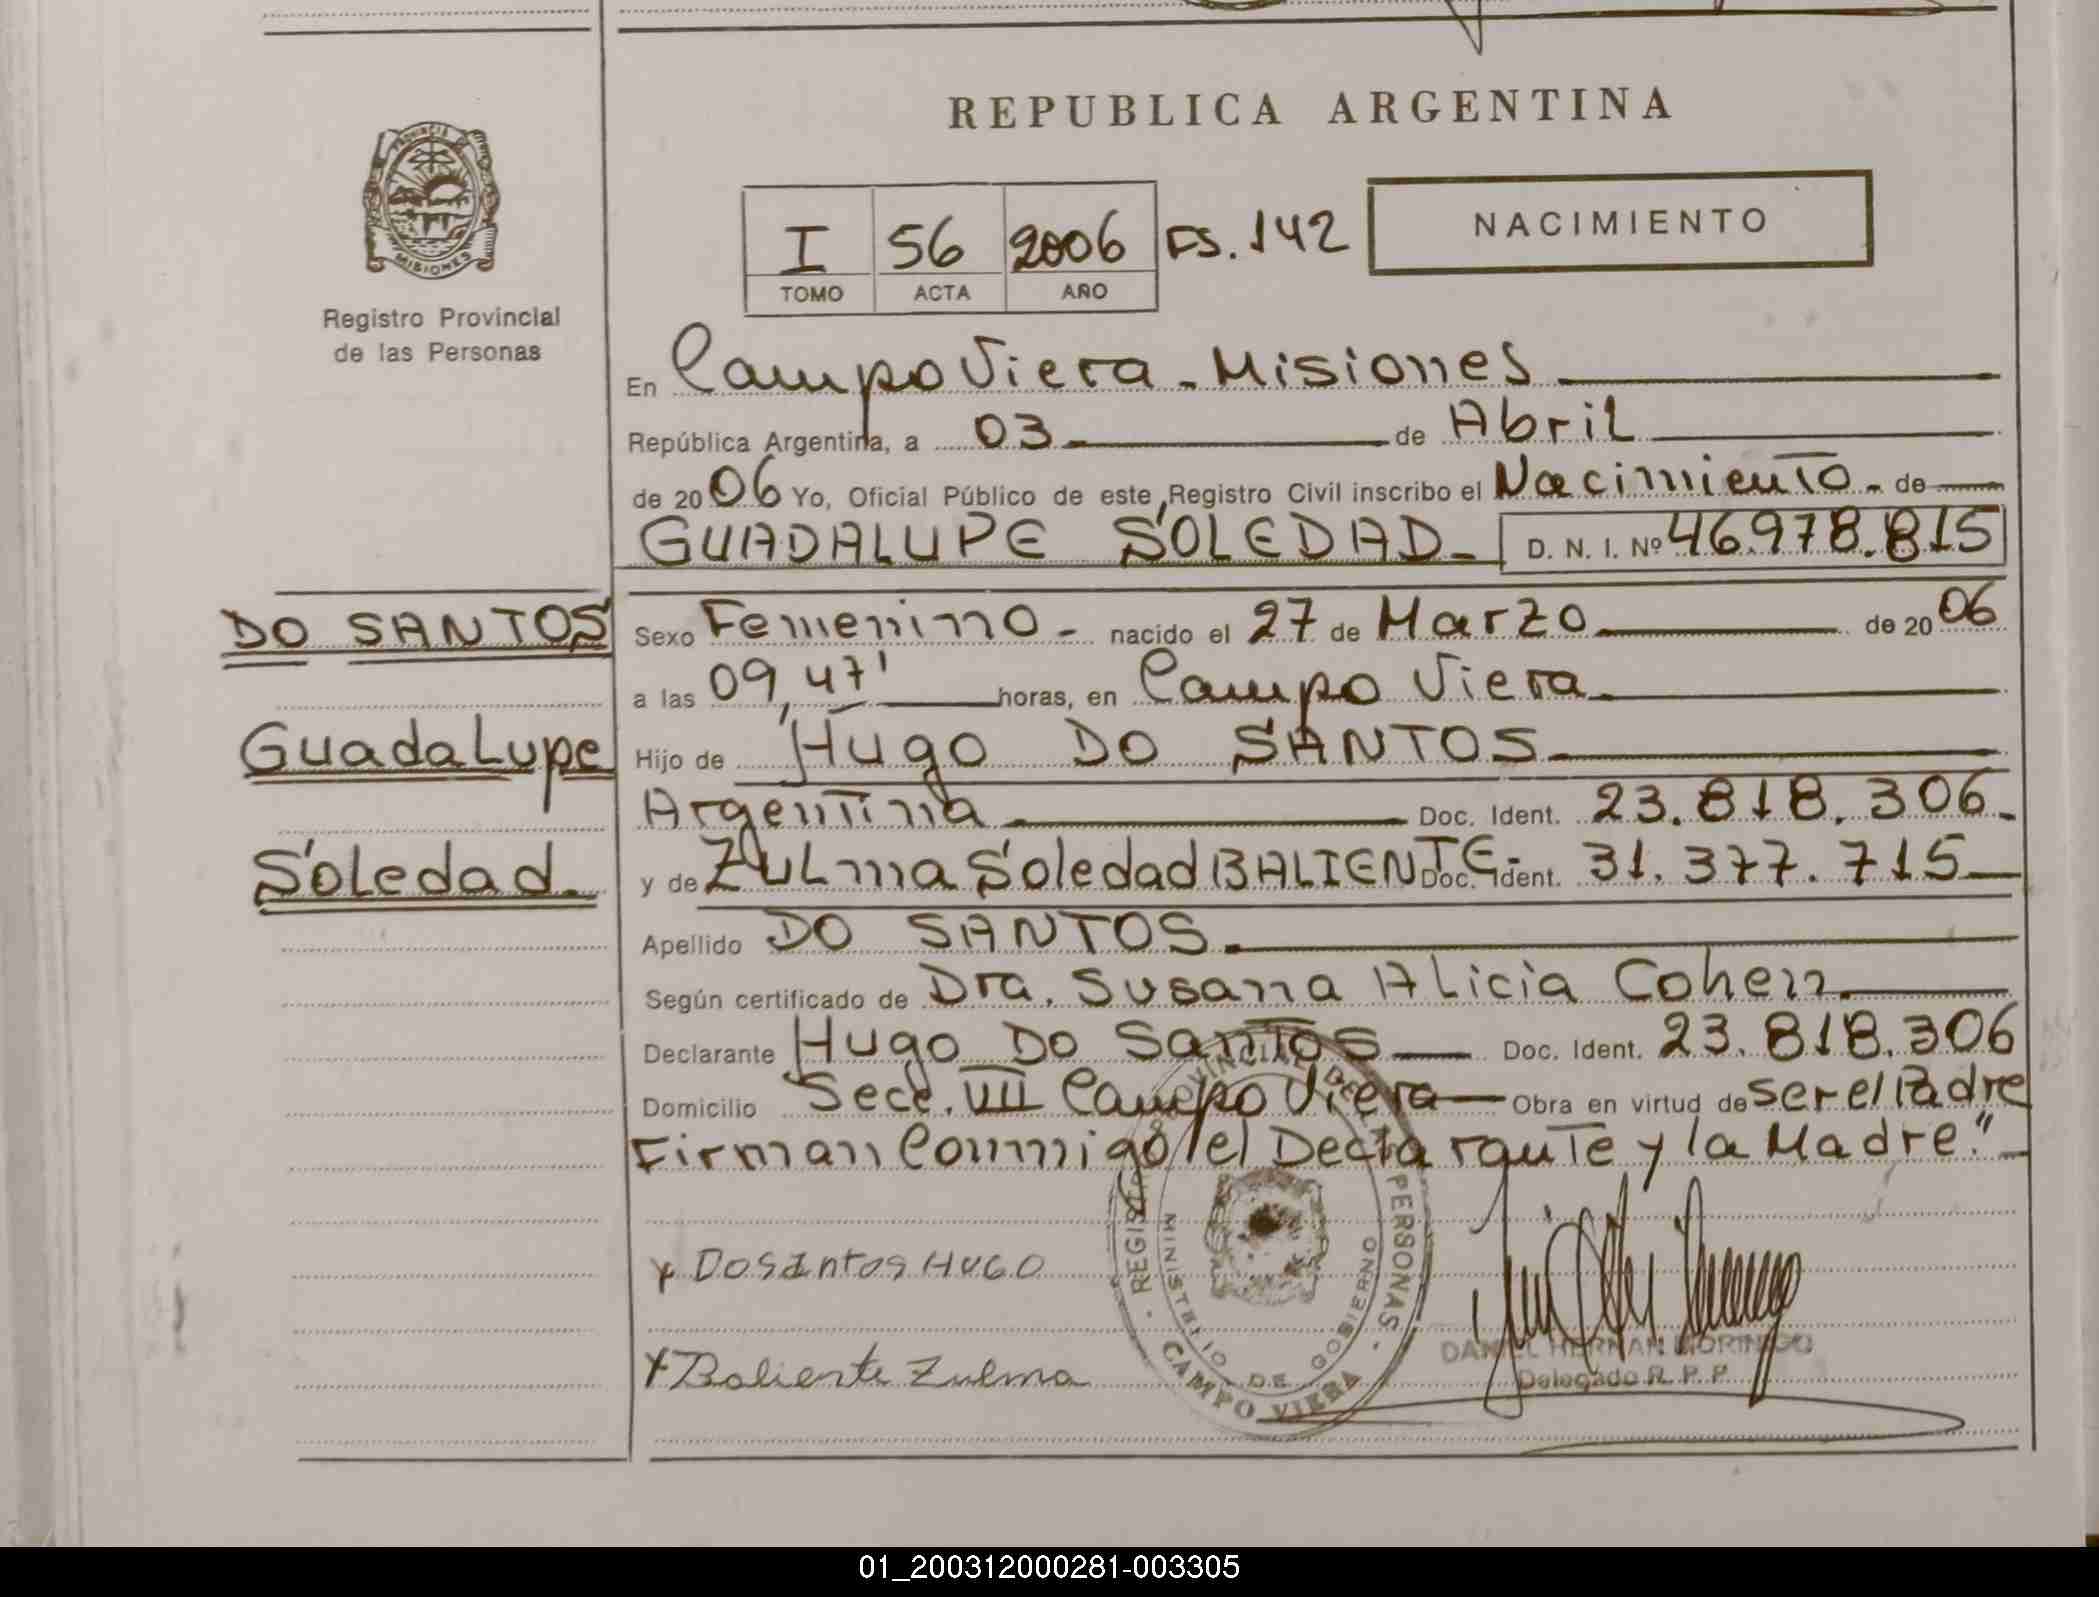 REPUBLICA ARGENTINA
PROVINCIA DE MISIONES
Registro Provincial
de las Personas
I 56 2006 FS. 142
TOMO ACTA AÑO
NACIMIENTO
En Campo Viera - Misiones
República Argentina, a 03 de Abril
de 2006 Yo, Oficial Público de este Registro Civil inscribo el Nacimiento - de
GUADALUPE SOLEDAD - D. N. I. Nº 46.978.815
DO SANTOS
Guadalupe
Soledad.
Sexo Femenino - nacido el 27 de Marzo de 2006
a las 09,47' horas, en Campo Viera.
Hijo de Hugo DO SANTOS
Argentina Doc. Ident. 23.818.306.
y de Zulma Soledad BALIENTE- Doc. Ident. 31.377.715
Apellido DO SANTOS.
Según certificado de Dra. Susana Alicia Cohen.
Declarante Hugo Do Santos Doc. Ident. 23.818.306
Domicilio Secc. VIII Campo Viera Obra en virtud de ser el Padre
Firman Conmigo el Declarante y la Madre."
x Dosantos HUGO
x Baliente Zulma
REGISTRO PROVINCIAL DE LAS PERSONAS
MINISTERIO DE GOBIERNO
CAMPO VIERA
DANIEL HERNAN MORINIGO
Delegado R. P. P.
01_200312000281-003305